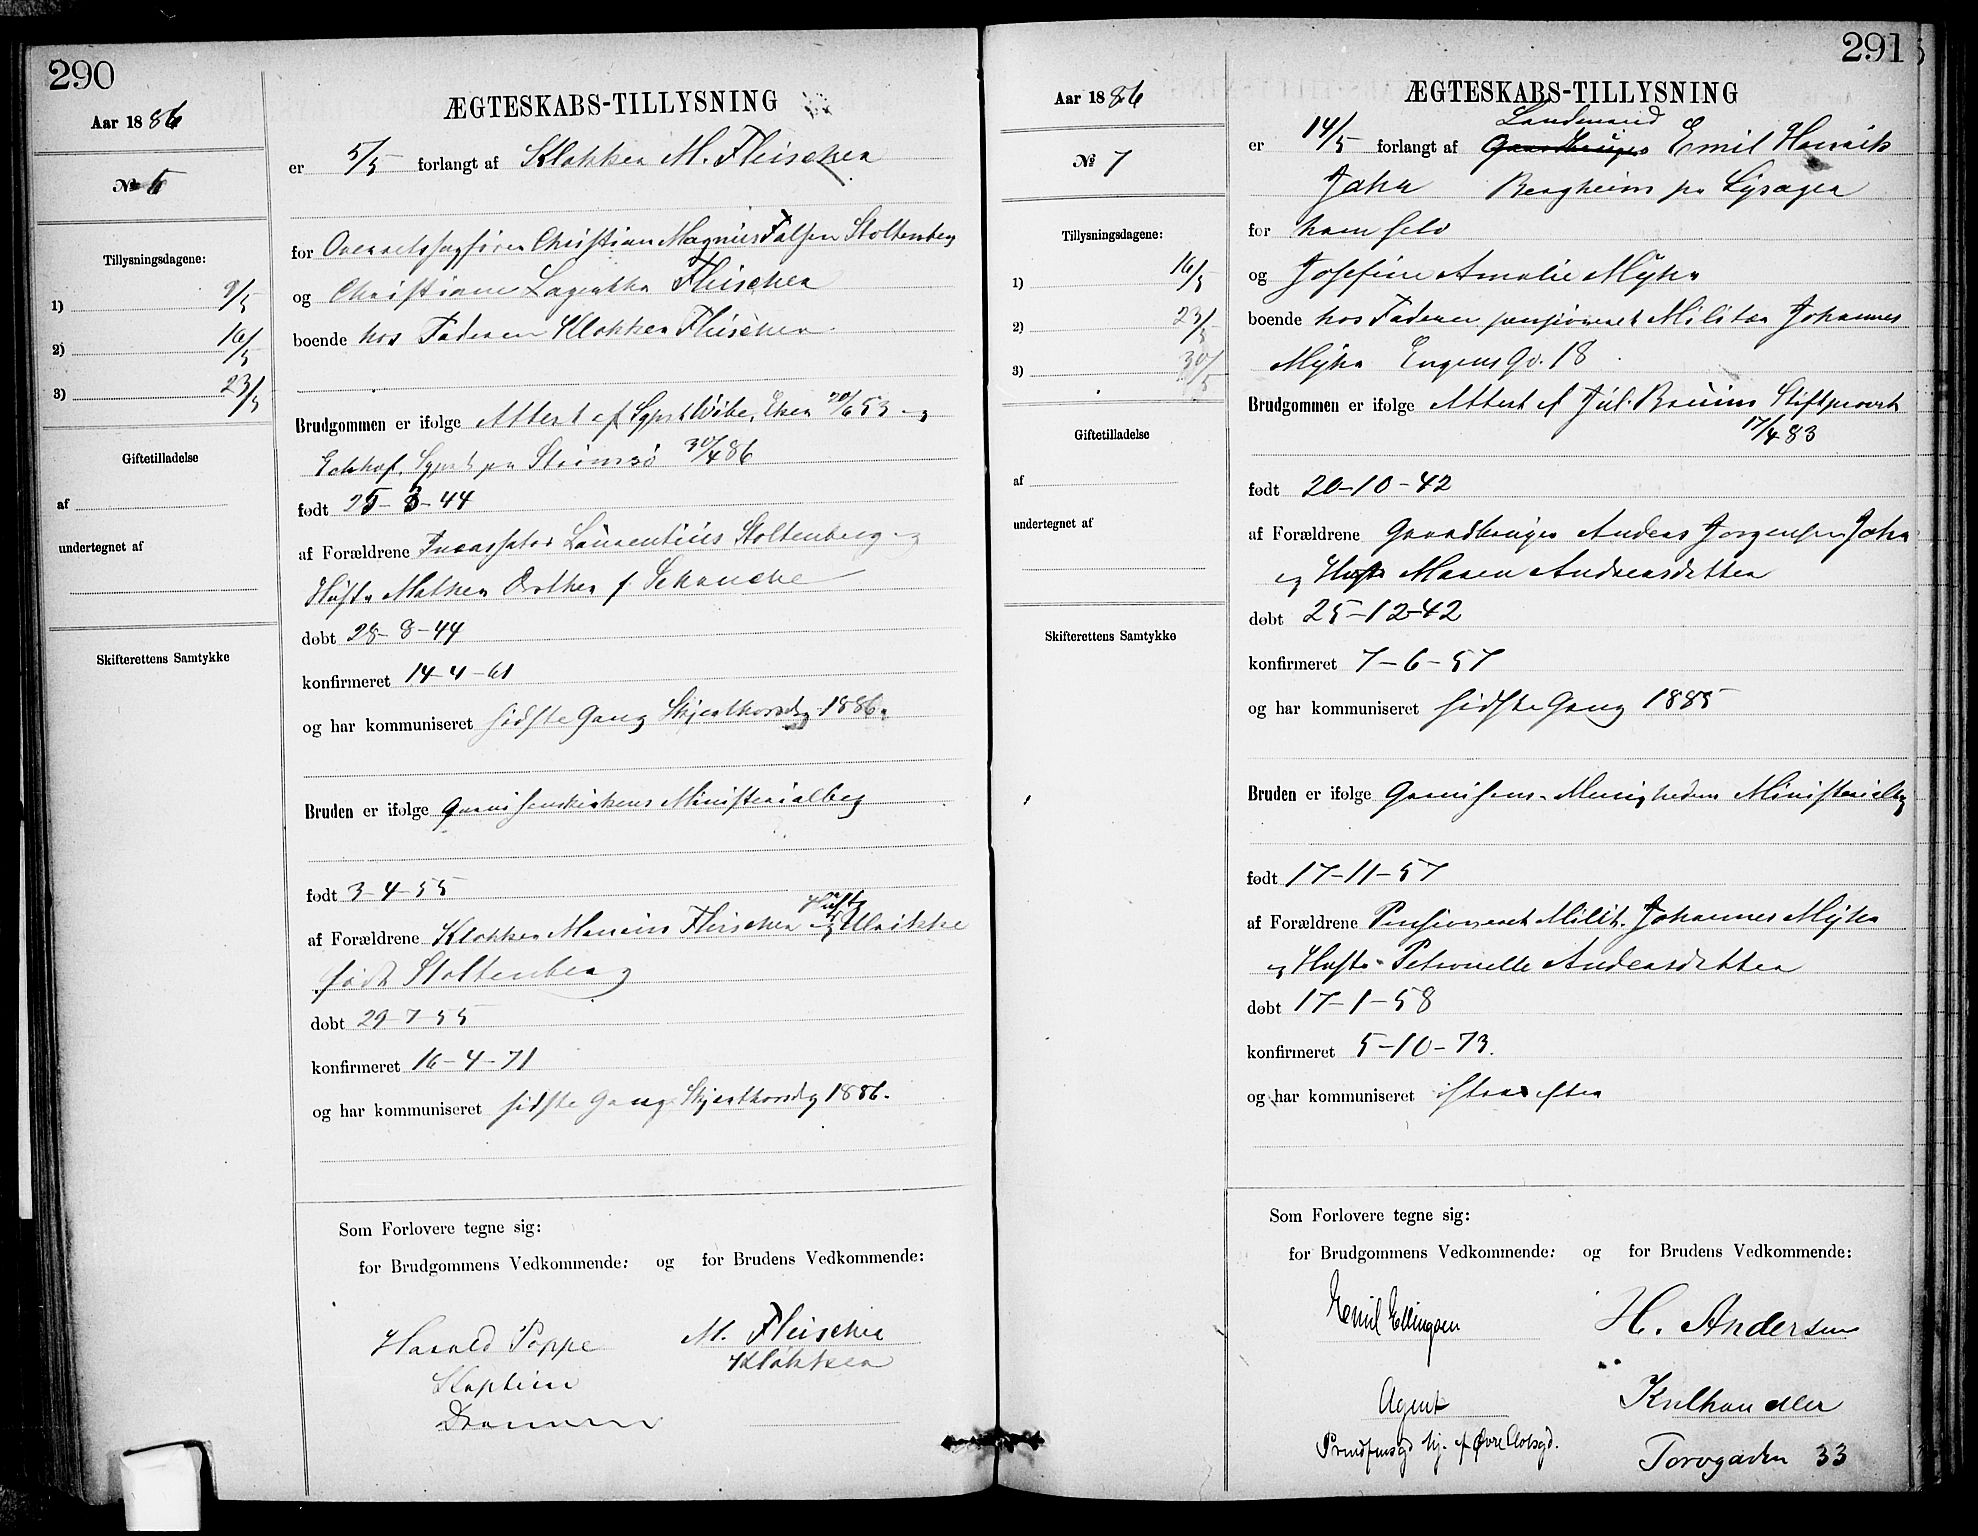 290
Aar 1886
ÆGTESKABS-TILLYSNING
№ 6
er 5/5 forlangt af Klokker M. Fleischer
Tillysningsdagene:
1) 9/5
2) 16/5
3) 23/5
for Overretssagfører Christian Magnus Falsen Stoltenberg
og Christiane Lagertha Fleischer
boende hos Faderen Klokker Fleischer.
Brudgommen er ifølge Attest af Sgprst Wibe, Eker 20/6 53 og
Sgprst pr Strømsø 30/4 86
Giftetilladelse
af
undertegnet af
født 25-3-44
af Forældrene Laurentius Stoltenberg og
Hust. Mathea Dorthea f. Schanche
døbt 28-8-44
Skifterettens Samtykke
konfirmeret 14-4-61
og har kommuniseret sidste Gang Skjærthorsdg 1886.
Bruden er ifølge Garnisonskirkens Ministerialbog
født 3-4-55
af Forældrene Klokker Marius Fleischer og Hust. Ulrikke
født Stoltenberg
døbt 29-7-55
konfirmeret 16-4-71
og har kommuniseret sidste Gang Skjærthorsdg 1886.
Som Forlovere tegne sig:
for Brudgommens Vedkommende: og for Brudens Vedkommende:
Harald Poppe M. Fleischer
Kaptein Klokker
Drammen
291
Aar 1886
ÆGTESKABS-TILLYSNING
№ 7
Landmand
er 14/5 forlangt af Gaardbruger Emil Henrik
Jahr Bergheim pr Lysager
Tillysningsdagene:
1) 16/5
2) 23/5
3) 30/5
for ham selv
og Josefine Amalie Myhr
boende hos Faderen pensioneret Militær Johannes
Myhr Engens Gd. 18
Brudgommen er ifølge Attest af Jul. Bruun Stiftprovst
17/4 83
Giftetilladelse
af
undertegnet af
født 20-10-42
af Forældrene Gaardbruger Anders Jørgensen Jahr
og Hust. Maren Andreasdatter
døbt 25-12-42
Skifterettens Samtykke
konfirmeret 7-6-57
og har kommuniseret sidste Gang 1885
Bruden er ifølge Garnisons-Menighedens Ministerialbg
født 17-11-57
af Forældrene Pensioneret Milit. Johannes Myhr
og Hust. Petronelle Andersdatter
døbt 17-1-58
konfirmeret 5-10-73.
og har kommuniseret straxefter
Som Forlovere tegne sig:
for Brudgommens Vedkommende: og for Brudens Vedkommende:
Emil Ellingsen H. Andersen
Agent Kulhandler
hj. af Øvre Slotsgd. Torvgaden 33